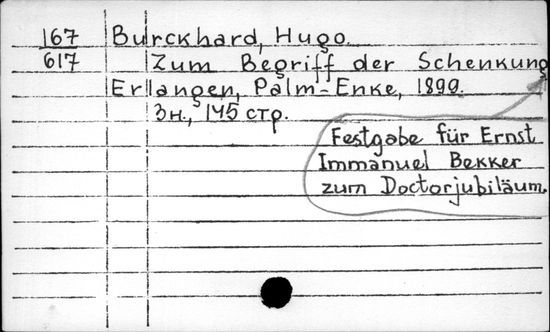 167 Burckhard, Hugo.
617 Zum Begriff der Schenkung
Erlangen, Palm-Enke, 1899.
3н., 145 стр.
Festgabe für Ernst
Immanuel Bekker
zum Doctorjubiläum.